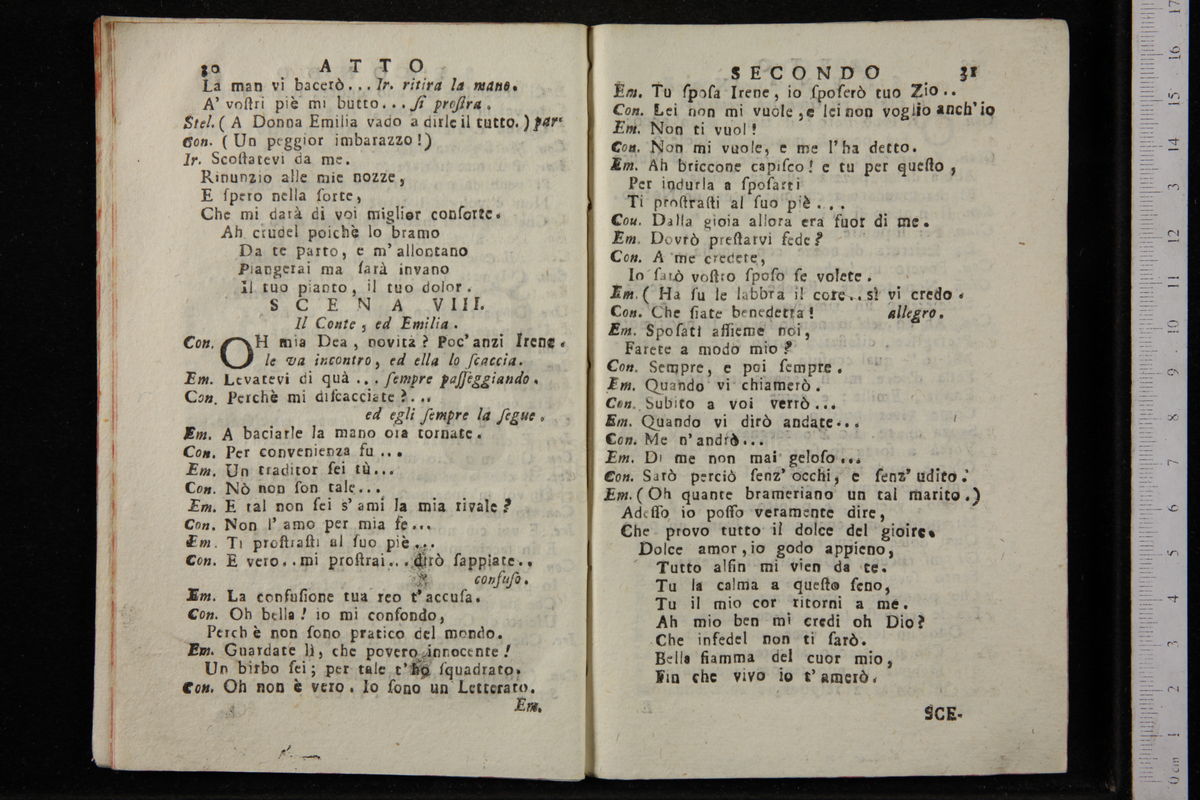 30 ATTO
La man vi bacerò... Ir. ritira la mano.
A' voſtri piè mi butto... ſi proſtra.
Stel. ( A Donna Emilia vado a dirle il tutto. ) par
Con. ( Un peggior imbarazzo! )
Ir. Scoſtatevi da me.
Rinunzio alle mie nozze,
E ſpero nella ſorte,
Che mi darà di voi miglior conſorte.
Ah crudel poichè lo bramo
Da te parto, e m'allontano
Piangerai ma ſarà invano
Il tuo pianto, il tuo dolor.
SCENA VIII.
Il Conte, ed Emilia.
Con. OH mia Dea, novità? Poc'anzi Irene.
le va incontro, ed ella lo ſcaccia.
Em. Levatevi di quà... ſempre paſſeggiando.
Con. Perchè mi diſcacciate?...
ed egli ſempre la ſegue.
Em. A baciarle la mano ora tornate.
Con. Per convenienza fu...
Em. Un traditor ſei tù...
Con. Nò non ſon tale...
Em. E tal non ſei s'ami la mia rivale?
Con. Non l'amo per mia fe...
Em. Ti proſtraſti al ſuo piè...
Con. E vero.. mi proſtrai... dirò ſappiate..
confuſo.
Em. La confuſione tua reo t'accuſa.
Con. Oh bella! io mi confondo,
Perch è non ſono pratico del mondo.
Em. Guardate lì, che povero innocente!
Un birbo ſei; per tale t'ho ſquadrato.
Con. Oh non è vero. Io ſono un Letterato.
Em.
SECONDO 31
Em. Tu ſpoſa Irene, io ſpoſerò tuo Zio..
Con. Lei non mi vuole, e lei non voglio anch'io
Em. Non ti vuol!
Con. Non mi vuole, e me l'ha detto.
Em. Ah briccone capiſco! e tu per queſto,
Per indurla a ſpoſarti
Ti proſtraſti al ſuo piè...
Cou. Dalla gioia allora era fuor di me.
Em. Dovrò preſtarvi fede?
Con. A me credete,
Io ſarò voſtro ſpoſo ſe volete.
Em. ( Ha ſu le labbra il core.. sì vi credo.
Con. Che ſiate benedetta! allegro.
Em. Spoſati aſſieme noi,
Farete a modo mio?
Con. Sempre, e poi ſempre.
Em. Quando vi chiamerò.
Con. Subito a voi verrò...
Em. Quando vi dirò andate...
Con. Me n'andrò...
Em. Di me non mai geloſo...
Con. Sarò perciò ſenz'occhi, e ſenz'udito.
Em. (Oh quante brameriano un tal marito.)
Adeſſo io poſſo veramente dire,
Che provo tutto il dolce del gioire.
Dolce amor, io godo appieno,
Tutto alfin mi vien da te.
Tu la calma a queſto ſeno,
Tu il mio cor ritorni a me.
Ah mio ben mi credi oh Dio?
Che infedel non ti ſarò.
Bella fiamma del cuor mio,
Fin che vivo io t'amerò.
SCE-
0 cm 1 2 3 4 5 6 7 8 9 10 11 12 3 14 15 16 17